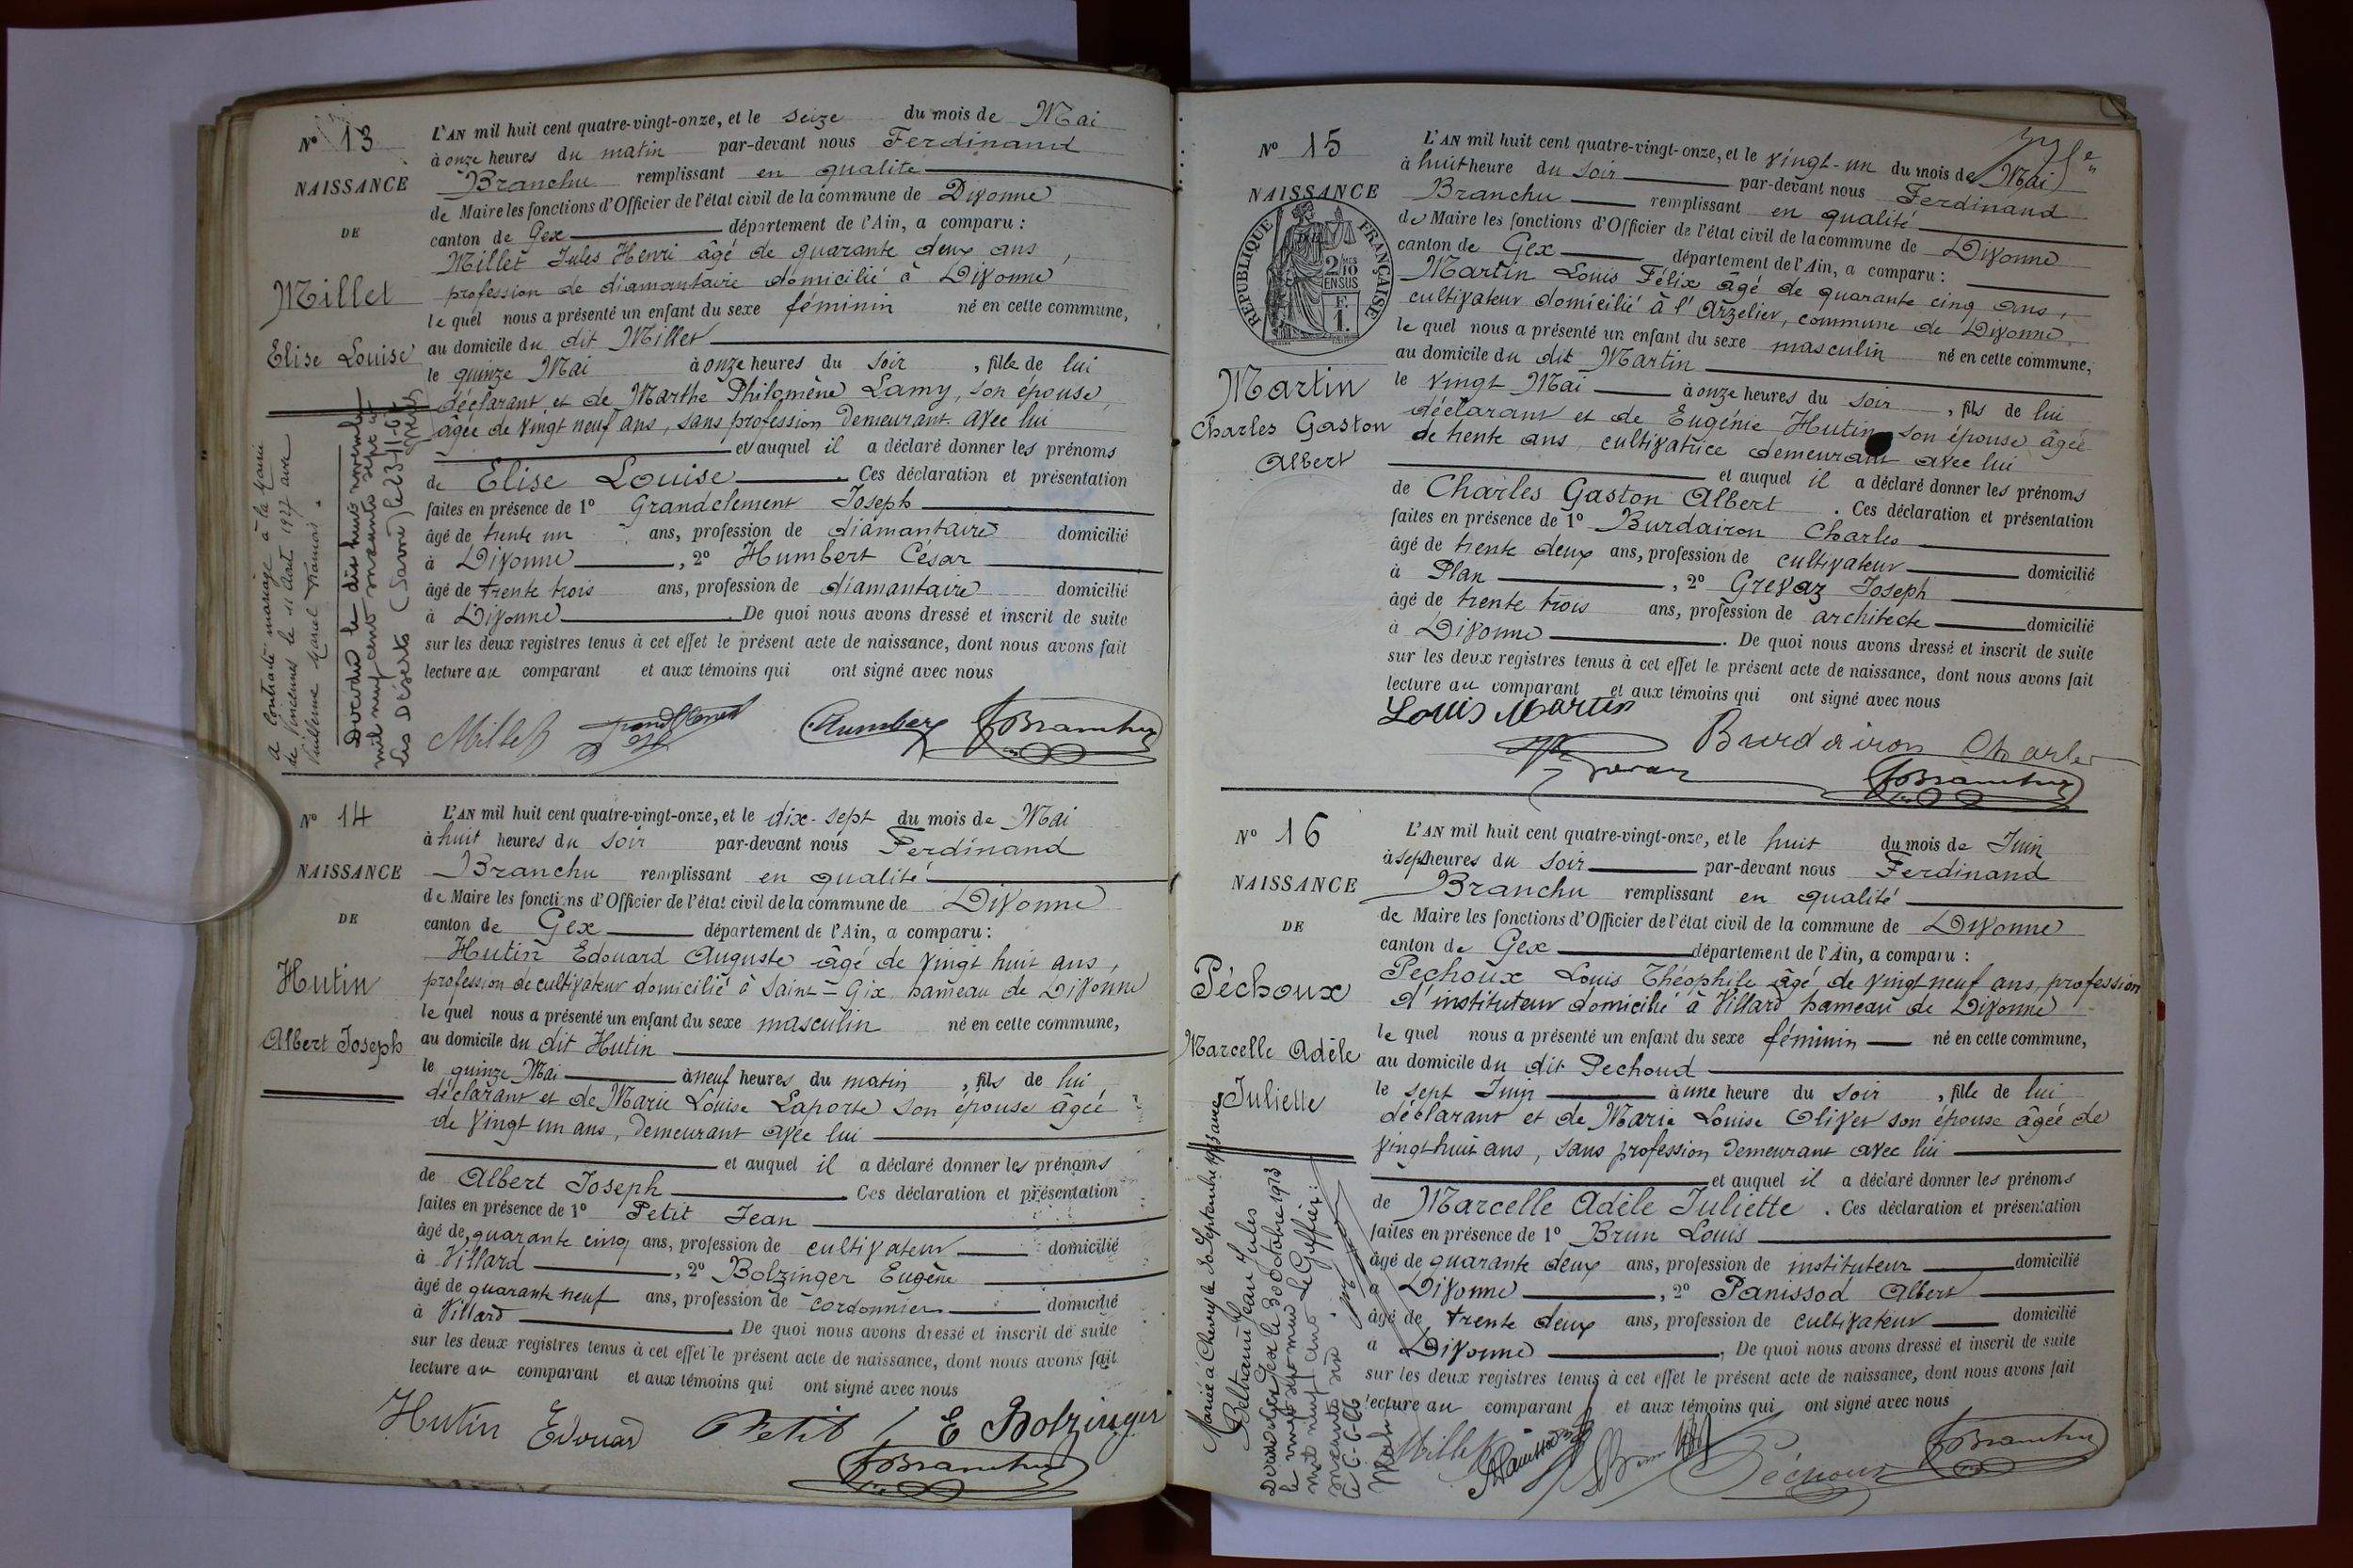 Nº 13
NAISSANCE
DE
Millet
Elise Louise
L'AN mil huit cent quatre-vingt-onze, et le seize du mois de Mai
à onze heures du matin par-devant nous Ferdinand
Branchu remplissant en qualité
de Maire les fonctions d'Officier de l'état civil de la commune de Divonne
canton de Gex département de l'Ain, a comparu :
Millet Jules Henri âgé de quarante deux ans,
profession de diamantaire domicilié à Divonne
le quel nous a présenté un enfant du sexe féminin né en cette commune,
au domicile du dit Millet
le quinze Mai à onze heures du soir, fille de lui
déclarant et de Marthe Philomène Lamy, son épouse,
âgée de vingt neuf ans, sans profession demeurant avec lui
et auquel il a déclaré donner les prénoms
de Elise Louise. Ces déclaration et présentation
faites en présence de 1º Grandclement Joseph
âgé de trente un ans, profession de diamantaire domicilié
à Divonne, 2º Humbert César
âgé de trente trois ans, profession de diamantaire domicilié
à Divonne. De quoi nous avons dressé et inscrit de suite
sur les deux registres tenus à cet effet le présent acte de naissance, dont nous avons fait
lecture au comparant et aux témoins qui ont signé avec nous
a contracté mariage à la Mairie
de Vincennes le 11 Août 1927 avec
Vuillerme Marcel François.
Décédée le dix huit novembre
mil neuf cent soixante sept à
Les Déserts (Savoie) le 23-11-67
Millet
Humbert
Branchu
Nº 14
NAISSANCE
DE
Hutin
Albert Joseph
L'AN mil huit cent quatre-vingt-onze, et le dix-sept du mois de Mai
à huit heures du soir par-devant nous Ferdinand
Branchu remplissant en qualité
de Maire les fonctions d'Officier de l'état civil de la commune de Divonne
canton de Gex département de l'Ain, a comparu :
Hutin Edouard Auguste âgé de vingt huit ans,
profession de cultivateur domicilié à Saint-Gix hameau de Divonne
le quel nous a présenté un enfant du sexe masculin né en cette commune,
au domicile du dit Hutin
le quinze Mai à neuf heures du matin, fils de lui
déclarant et de Marie Louise Laporte son épouse âgée
de vingt un ans, demeurant avec lui
et auquel il a déclaré donner les prénoms
de Albert Joseph. Ces déclaration et présentation
faites en présence de 1º Petit Jean
âgé de quarante cinq ans, profession de cultivateur domicilié
à Villard, 2º Bolzinger Eugène
âgé de quarante neuf ans, profession de cordonnier domicilié
à Villard. De quoi nous avons dressé et inscrit de suite
sur les deux registres tenus à cet effet le présent acte de naissance, dont nous avons fait
lecture au comparant et aux témoins qui ont signé avec nous
Hutin Edouard Petit J E Bolzinger
Branchu
Nº 15
NAISSANCE
RÉPUBLIQUE FRANÇAISE
2/10 EN SUS
F.
1.
Martin
Charles Gaston
Albert
L'AN mil huit cent quatre-vingt-onze, et le vingt-un du mois de Mai
à huit heure du soir par-devant nous Ferdinand
Branchu remplissant en qualité
de Maire les fonctions d'Officier de l'état civil de la commune de Divonne
canton de Gex département de l'Ain, a comparu :
Martin Louis Félix âgé de quarante cinq ans,
cultivateur domicilié à l'Arzelier, commune de Divonne
le quel nous a présenté un enfant du sexe masculin né en cette commune,
au domicile du dit Martin
le vingt Mai à onze heures du soir, fils de lui
déclarant et de Eugénie Hutin son épouse âgée
de trente ans cultivatrice demeurant avec lui
et auquel il a déclaré donner les prénoms
de Charles Gaston Albert. Ces déclaration et présentation
faites en présence de 1º Burdairon Charles
âgé de trente deux ans, profession de cultivateur domicilié
à Plan, 2º Grevaz Joseph
âgé de trente trois ans, profession de architecte domicilié
à Divonne. De quoi nous avons dressé et inscrit de suite
sur les deux registres tenus à cet effet le présent acte de naissance, dont nous avons fait
lecture au comparant et aux témoins qui ont signé avec nous
Louis Martin
Burdairon Charles
Branchu
Nº 16
NAISSANCE
DE
Péchoux
Marcelle Adèle
Juliette
L'AN mil huit cent quatre-vingt-onze, et le huit du mois de Juin
à sept heures du soir par-devant nous Ferdinand
Branchu remplissant en qualité
de Maire les fonctions d'Officier de l'état civil de la commune de Divonne
canton de Gex département de l'Ain, a comparu :
Pechoux Louis Théophile âgé de vingt neuf ans, profession
d'instituteur domicilié à Villard hameau de Divonne
le quel nous a présenté un enfant du sexe féminin né en cette commune,
au domicile du dit Pechoud
le sept Juin à une heure du soir, fille de lui
déclarant et de Marie Louise Olivet son épouse âgée de
vingt huit ans, sans profession demeurant avec lui
et auquel il a déclaré donner les prénoms
de Marcelle Adèle Juliette. Ces déclaration et présentation
faites en présence de 1º Brun Louis
âgé de quarante deux ans, profession de instituteur domicilié
à Divonne, 2º Panissod Albert
âgé de trente deux ans, profession de cultivateur domicilié
à Divonne. De quoi nous avons dressé et inscrit de suite
sur les deux registres tenus à cet effet le présent acte de naissance, dont nous avons fait
lecture au comparant et aux témoins qui ont signé avec nous
Mariée à Chevry le 30 Septembre 1913 avec
Jean Jules
Gex le 30 Octobre 1913
Le Greffier :
mil neuf cent
soixante six
le 6-6-66
Péchoux
Branchu